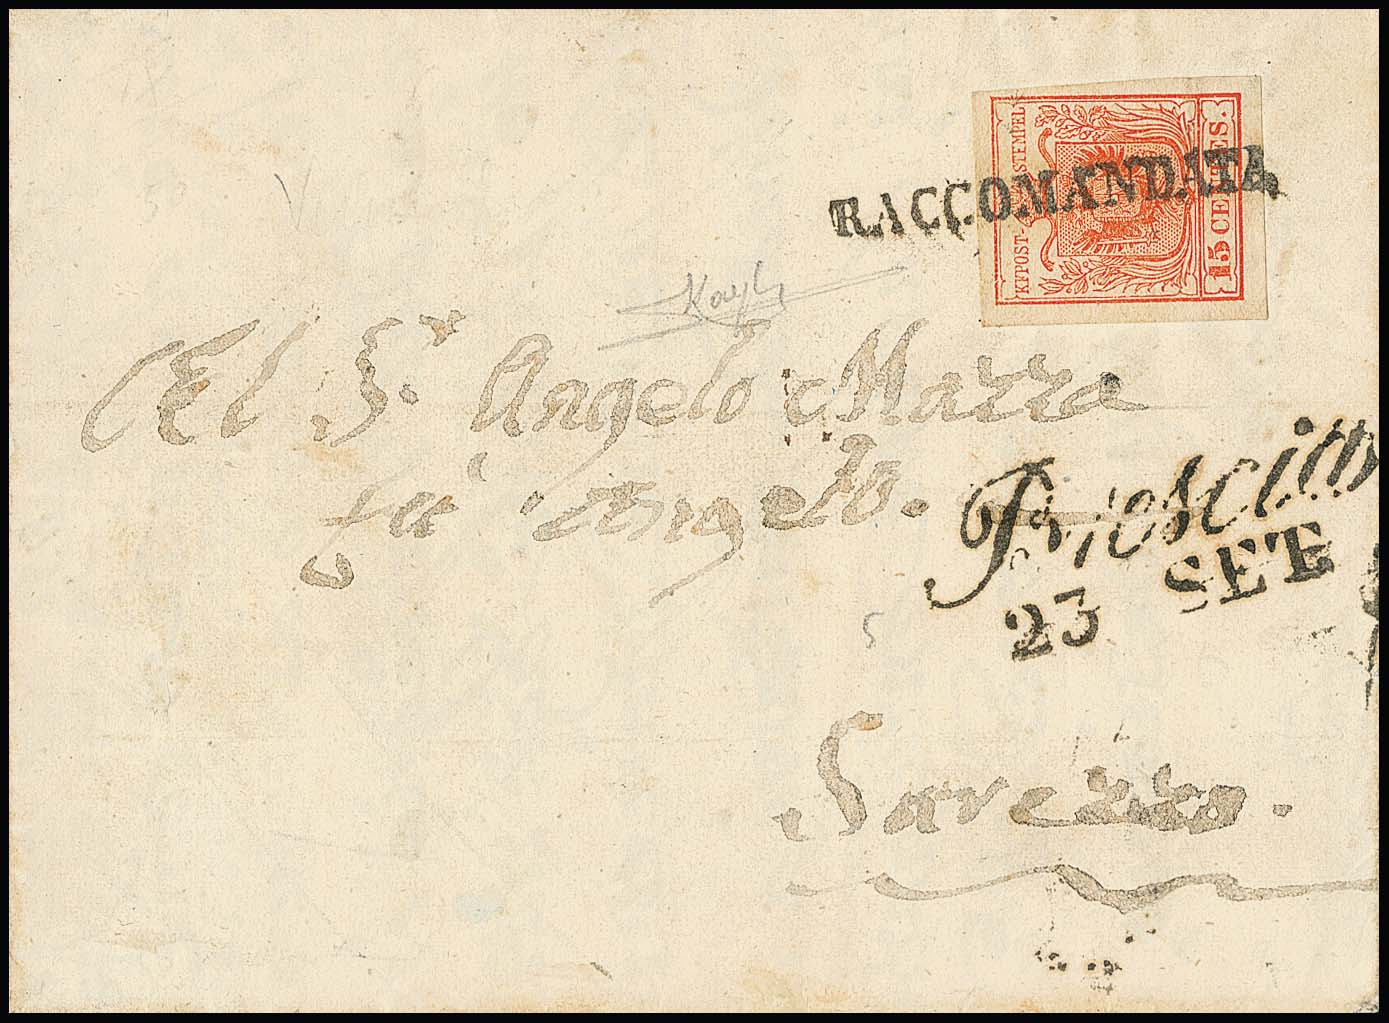 KK POST-STEMPEL
15 CENTES.
RACCOMANDATA
Al Sr. Angelo Mazza
fu Angelo.
23 SET
5
Sarezzo.